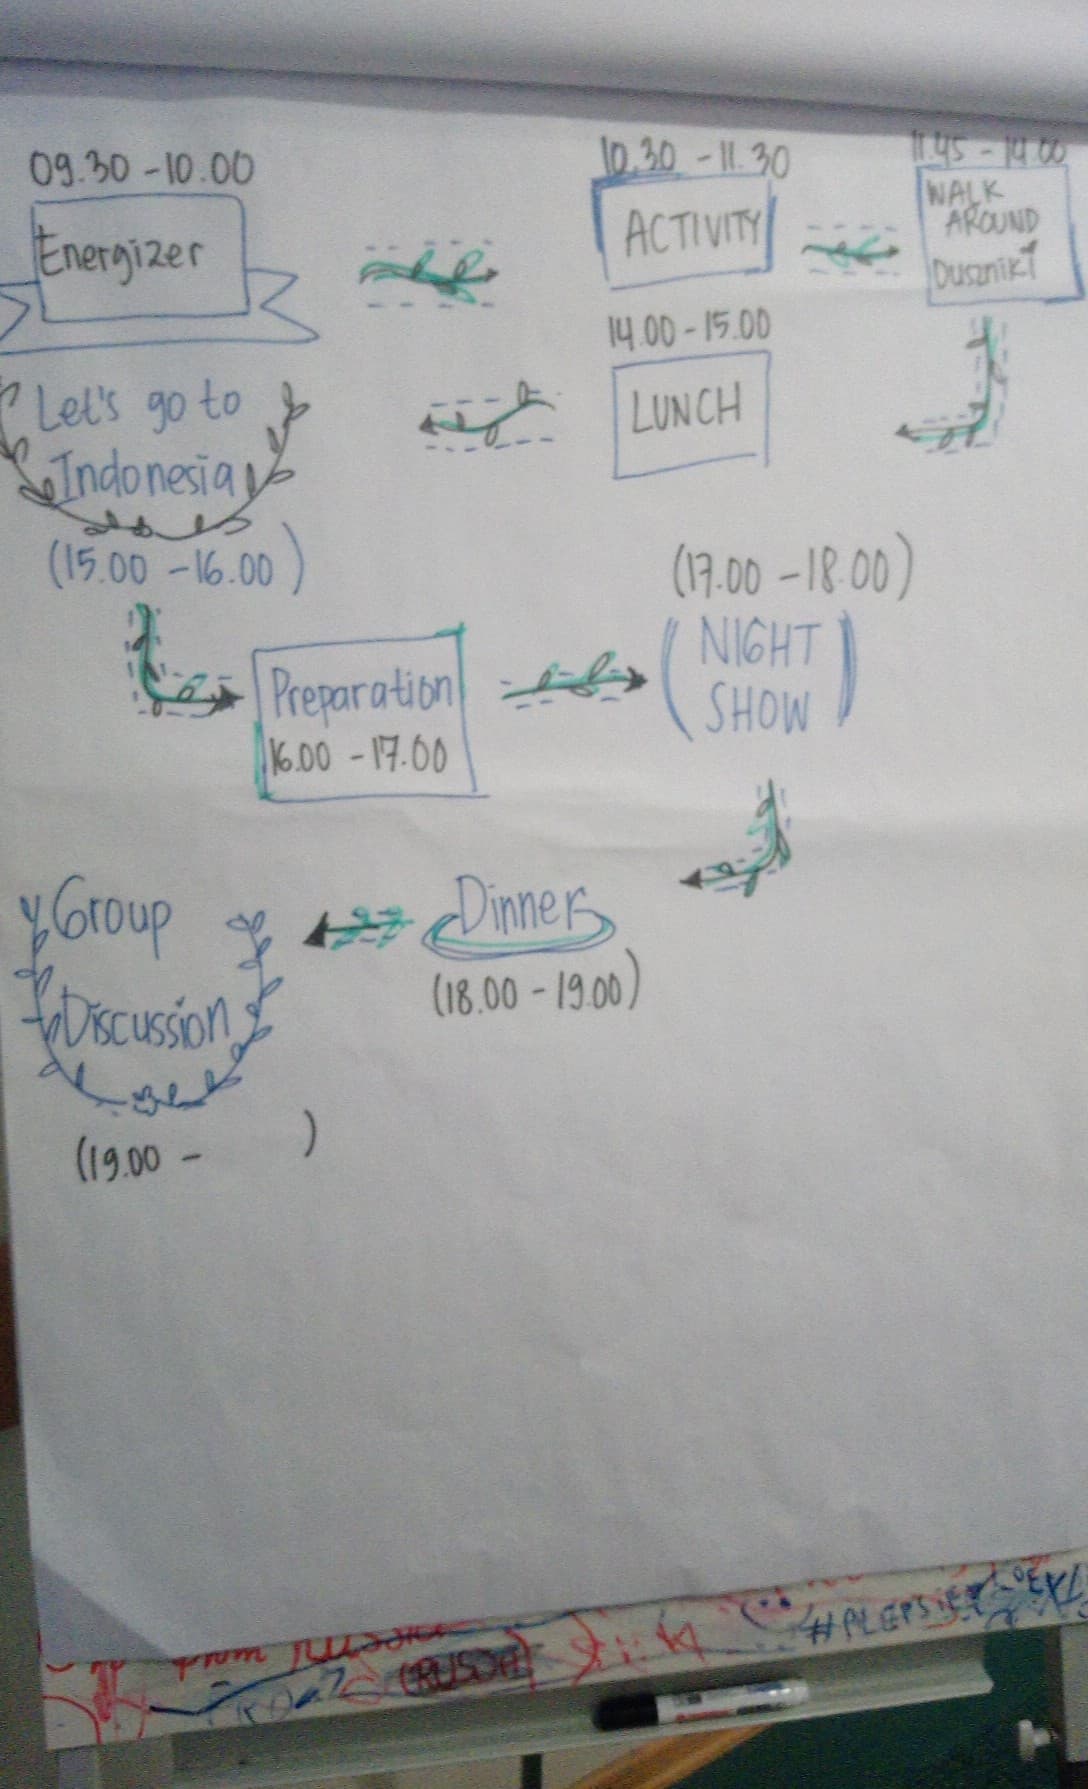 09.30 - 10.00
Energizer
10.30 - 11.30
ACTIVITY
11.45 - 14.00
WALK
AROUND
Duszniki
14.00 - 15.00
LUNCH
Let's go to
Indonesia
(15.00 - 16.00)
Preparation
16.00 - 17.00
(17.00 - 18.00)
(NIGHT
SHOW)
Dinner
(18.00 - 19.00)
Group
Discussion
(19.00 - )
from RUSSIA